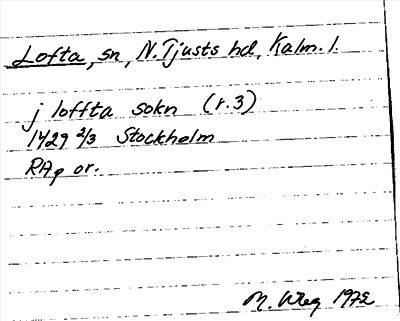 Lofta, sn, N. Tjusts hd, Kalm. l.
j loffta sokn (r. 3)
1429 2/3 Stockholm
RAp or.
M. Wreg 1972